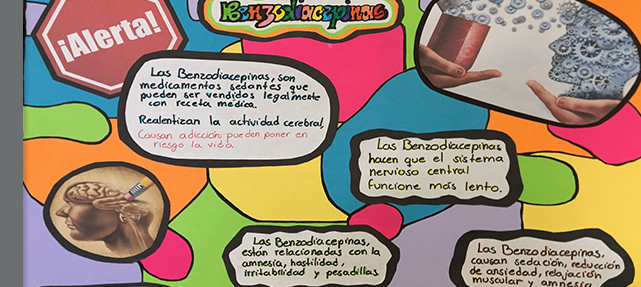 Benzodiacepinas
¡Alerta!
Las Benzodiacepinas, son
medicamentos sedantes que
pueden ser vendidos legalmente
con receta médica.
Realentizan la actividad cerebral.
Causan adicción pueden poner en
riesgo la vida.
Las Benzodiacepinas
hacen que el sistema
nervioso central
funcione más lento.
Las Benzodiacepinas,
están relacionadas con la
amnesia, hostilidad,
irritabilidad y pesadillas
Las Benzodiacepinas,
causan sedación, reducción
de ansiedad, relajación
muscular y amnesia